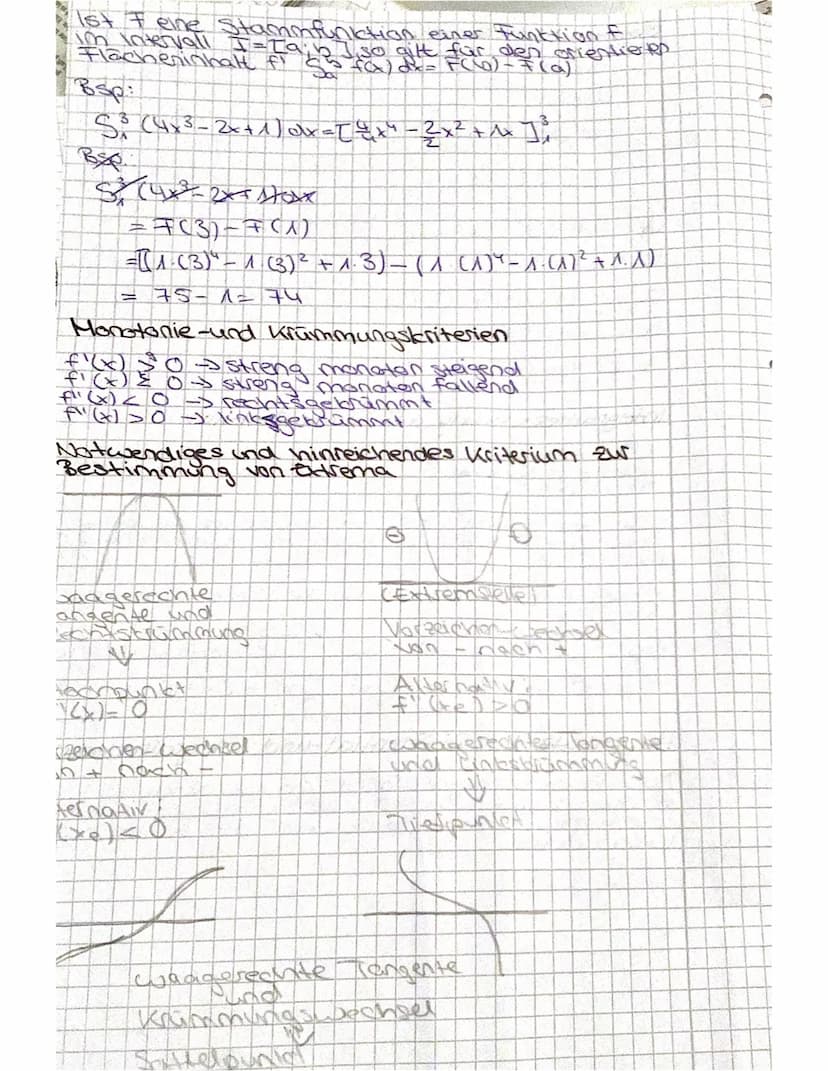 Ist F eine Stammfunktion einer Funktion f
im Intervall I=[a;b], so gilt für den orientierten
Flächeninhalt f' S_a^b f(x) dx = F(b) - F(a)
Bsp:
S_1^3 (4x³ - 2x + 1) dx = [4/4 x⁴ - 2/2 x² + 1x]_1^3
Bsp:
S_1^3 (4x³ - 2x + 1) dx
= F(3) - F(1)
=[(1·(3)⁴ - 1·(3)² + 1·3) - (1·(1)⁴ - 1·(1)² + 1·1)
= 75 - 1 = 74
Monotonie- und Krümmungskriterien
f'(x) > 0 → streng monoton steigend
f'(x) 0 → streng monoton fallend
f''(x) < 0 → rechtsgekrümmt
f''(x) > 0 → linksgekrümmt
Notwendiges und hinreichendes Kriterium zur
Bestimmung von Extrema
⊖
aagerechte
angente und
echtskrümmung
⇓
ochpunkt
'(x) = 0
zeichen-Wechsel
n + nach -
ternativ:
(xe) < 0
(Extremstelle)
Vorzeichen-Wechsel
von - nach +
Alternativ:
f''(xe) > 0
waagerechte Tangente
und Linkskrümmung
⇓
Tiefpunkt
waagerechte Tangente
und
Krümmungswechsel
⇓
Sattelpunkt